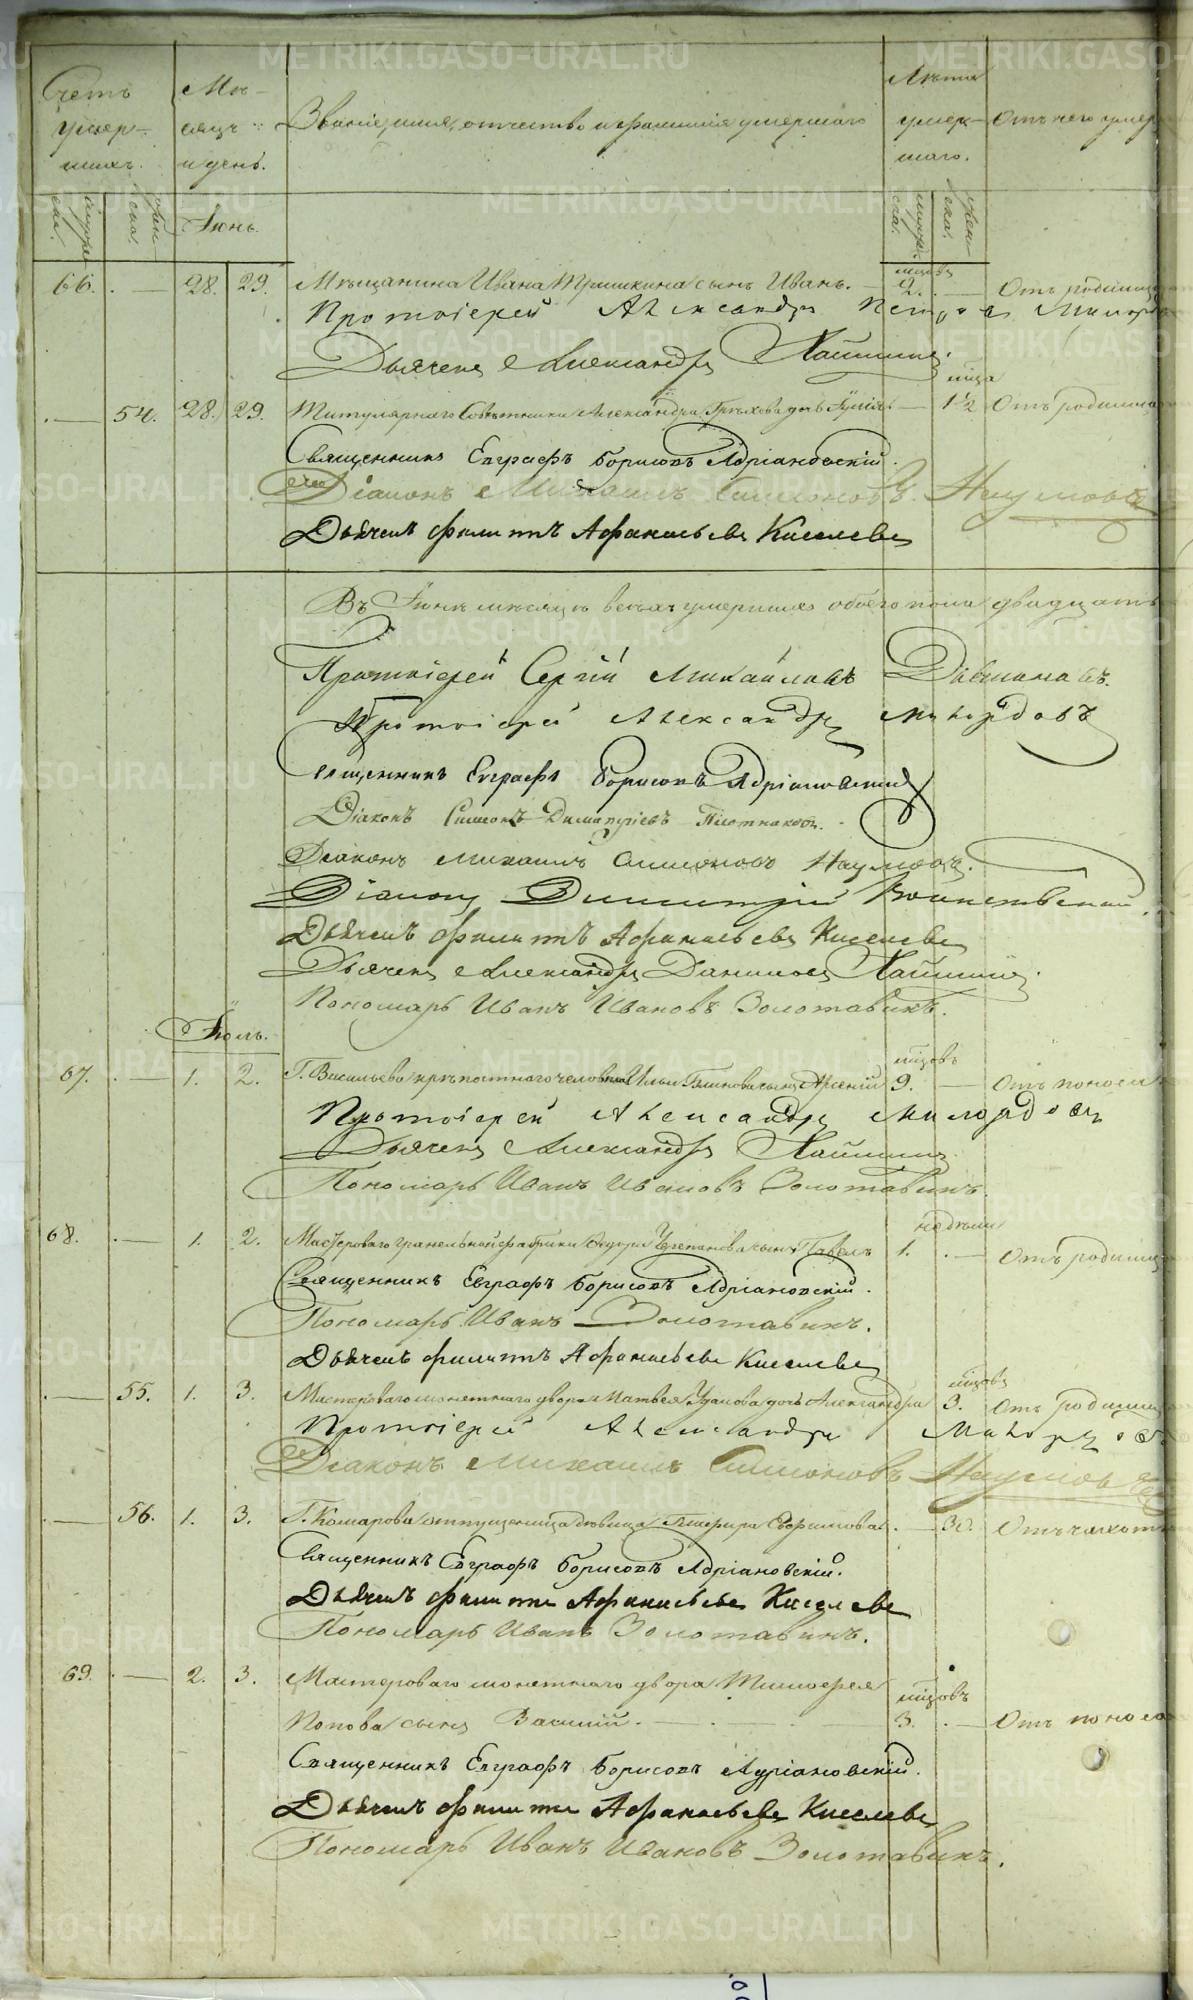 Счетъ умер-
шихъ.
Мѣ-
сяцъ
и день.
Званіе, имя, отчество и фамилія умершаго
Лѣта
умер-
шаго.
Отъ чего умер
муже
ска.
жен
ска.
Іюнь.
муже
ска.
жен
ска.
66. — 28. 29. Мѣщанина Ивана Тришкина сынъ Иванъ. — мцовъ 2. — Отъ родимца
Протоіерей Александръ Петровъ
Дьячекъ Александръ
— 54. 28. 29. Титулярнаго Совѣтника Александра дочь — мца 1½ Отъ родимца
Священникъ Евграфъ Борисовъ Адріановскій.
Діаконъ Михаилъ Симеоновъ Наумовъ
Дьячекъ Филиппъ Афанасьевъ Киселевъ
Въ Іюнѣ мѣсяцѣ всѣхъ умершихъ обоего пола двадцать
Протоіерей Сергій Михайловъ
Протоіерей Александръ Милордовъ
Священникъ Евграфъ Борисовъ Адріановскій
Діаконъ Симеонъ Димитріевъ Плотниковъ.
Діаконъ Михаилъ Симеоновъ Наумовъ.
Діаконъ Димитрій Воинственскій
Дьячекъ Филиппъ Афанасьевъ Киселевъ
Дьячекъ Александръ Даниловъ
Пономарь Иванъ Ивановъ Золотавинъ.
Іюль.
67. — 1. 2. Г. Васильева крѣпостнаго человѣка Ильи Блинова сынъ Арсеній мцовъ 9. — Отъ поноса
Протоіерей Александръ Милордовъ
Дьячекъ Александръ
Пономарь Иванъ Ивановъ Золотавинъ.
68. — 1. 2. Мастероваго гранильной фабрики Федора Черепанова сынъ Павелъ недѣли 1. — Отъ родимца
Священникъ Евграфъ Борисовъ Адріановскій.
Пономарь Иванъ Золотавинъ.
Дьячекъ Филиппъ Афанасьевъ Киселевъ
— 55. 1. 3. Мастероваго монетнаго двора Матвея Ушакова дочь Александра мцовъ 3. Отъ родимца
Протоіерей Александръ Милордовъ
Діаконъ Михаилъ Симеоновъ Наумовъ
— 56. 1. 3. Г. Комарова отпущенница дѣвица Глафира Ефимова. — 30. Отъ чахотки
Священникъ Евграфъ Борисовъ Адріановскій.
Дьячекъ Филиппъ Афанасьевъ Киселевъ
Пономарь Иванъ Золотавинъ.
69. — 2. 3. Мастероваго монетнаго двора Тимофея
Попова сынъ Василій. — мцовъ 3. — Отъ поноса
Священникъ Евграфъ Борисовъ Адріановскій.
Дьячекъ Филиппъ Афанасьевъ Киселевъ
Пономарь Иванъ Ивановъ Золотавинъ.
METRIKI.GASO-URAL.RU